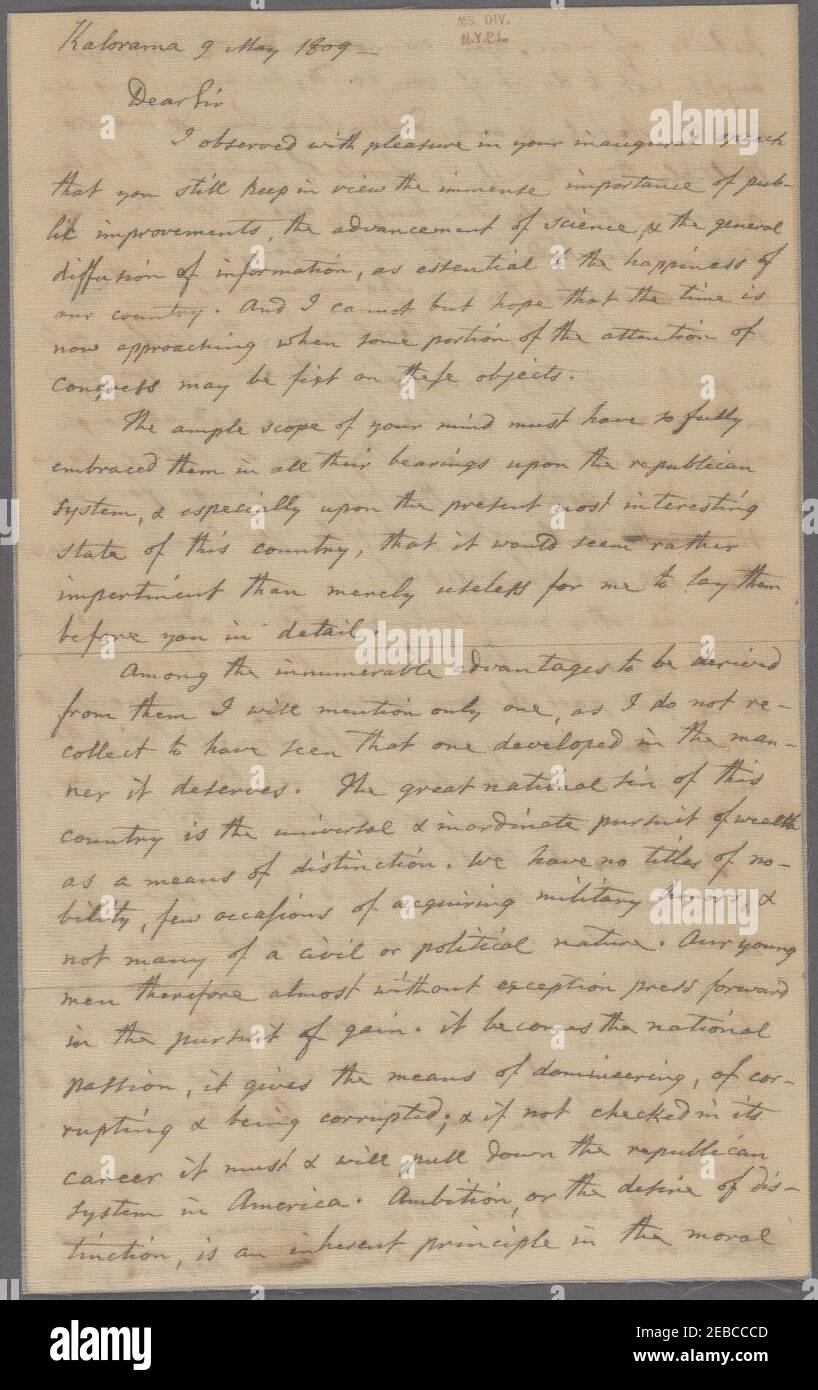 Kalorama 9 May 1809 —
MS. DIV.
N.Y.P.L.
Dear Sir
I observed with pleasure in your inaugural speech
that you still keep in view the immense importance of pub-
lic improvements, the advancement of science, & the general
diffusion of information, as essential to the happiness of
our country. And I cannot but hope that the time is
now approaching when some portion of the attention of
Congress may be fixt on these objects.
The ample scope of your mind must have so fully
embraced them in all their bearings upon the republican
system, & especially upon the present most interesting
state of this country, that it would seem rather
impertinent than merely useless for me to lay them
before you in detail.
Among the innumerable advantages to be derived
from them I will mention only one, as I do not re-
collect to have seen that one developed in the man-
ner it deserves. The great national sin of this
country is the universal & inordinate pursuit of wealth
as a means of distinction. We have no titles of no-
bility, few occasions of acquiring military honors, &
not many of a civil or political nature. Our young
men therefore almost without exception press forward
in the pursuit of gain. it becomes the national
passion, it gives the means of domineering, of cor-
rupting & being corrupted; & if not checked in its
career it must & will pull down the republican
system in America. Ambition, or the desire of dis-
tinction, is an inherent principle in the moral
alamy
alamy
alamy
alamy
Image ID: 2EBCCCD
www.alamy.com